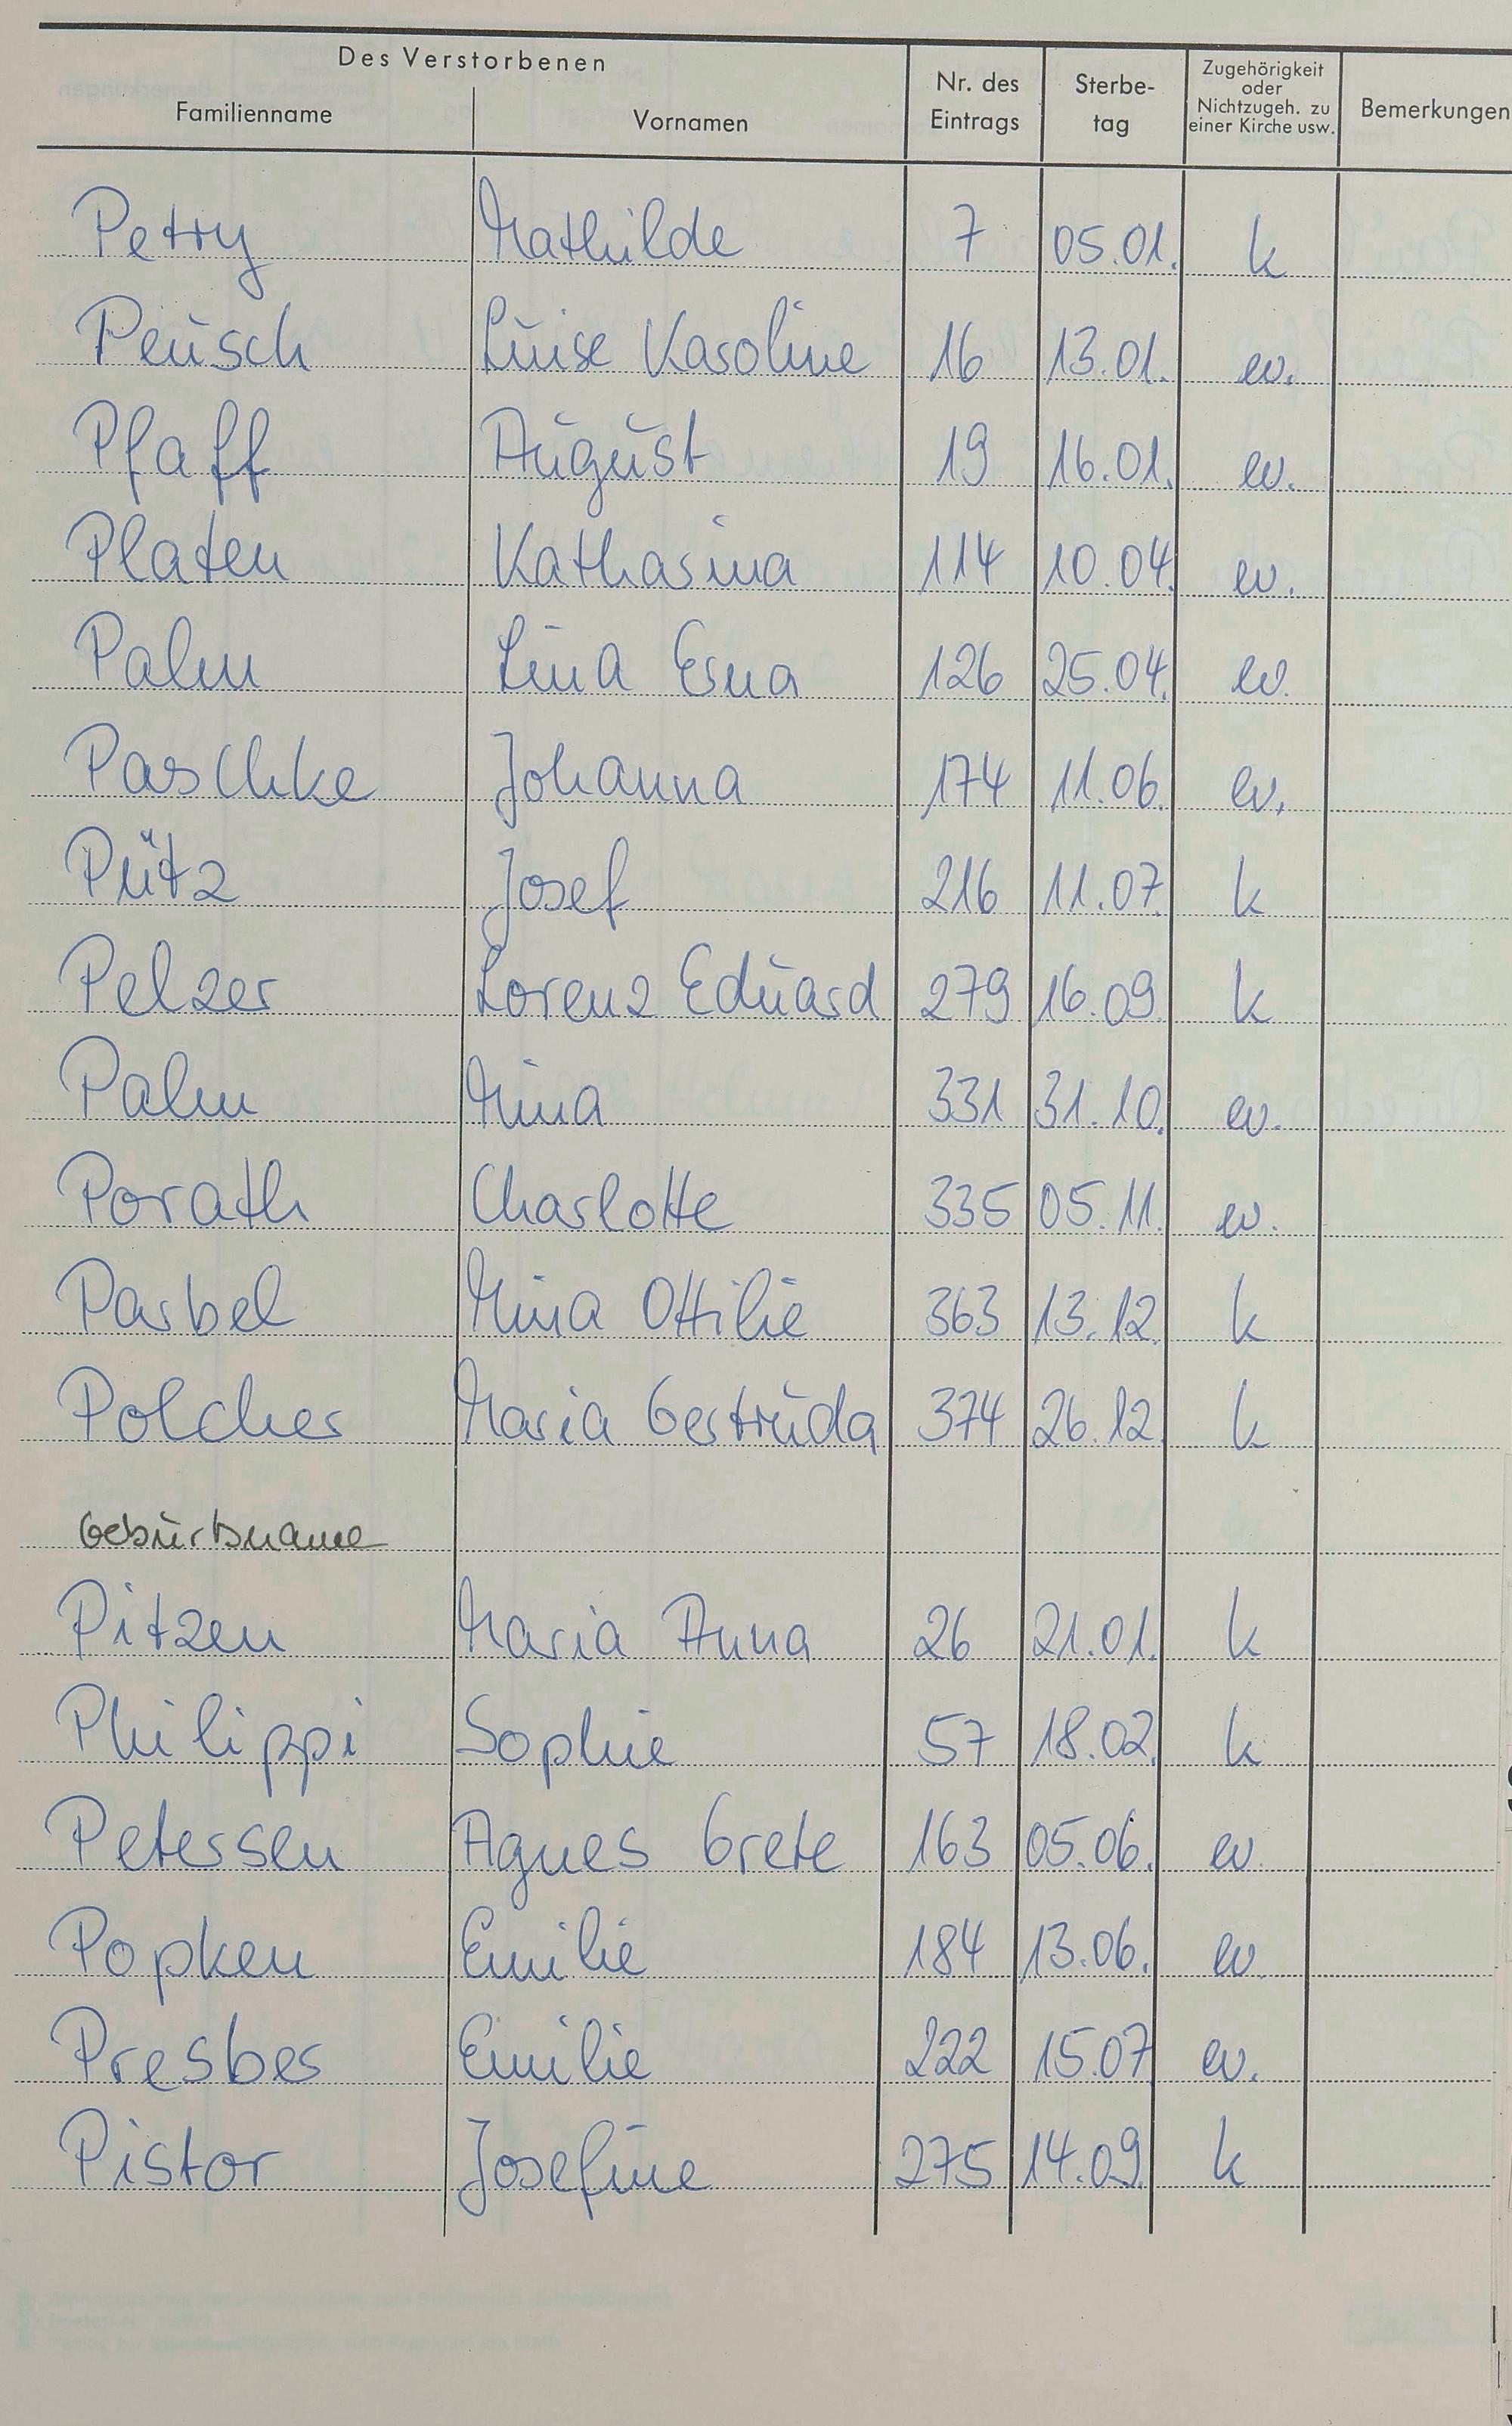 Des Verstorbenen
Familienname Vornamen Nr. des Eintrags Sterbe-tag Zugehörigkeit oder Nichtzugeh. zu einer Kirche usw. Bemerkungen
Petry Mathilde 7 05.01. k
Peusch Luise Karoline 16 13.01. ev.
Pfaff August 19 16.01. ev.
Platen Katharina 114 10.04. ev.
Palm Lina Erna 126 25.04. ev.
Paschke Johanna 174 11.06. ev.
Pütz Josef 216 11.07. k
Pelzer Lorenz Eduard 279 16.09. k
Palm Mina 331 31.10. ev.
Porath Charlotte 335 05.11. ev.
Parbel Mina Ottilie 363 13.12. k
Polcher Maria Gertruda 374 26.12. k
Geburtsname
Pitzen Maria Anna 26 21.01. k
Philippi Sophie 57 18.02. k
Petersen Agnes Grete 163 05.06. ev.
Popken Emilie 184 13.06. ev.
Presber Emilie 222 15.07 ev.
Pistor Josefine 275 14.09. k